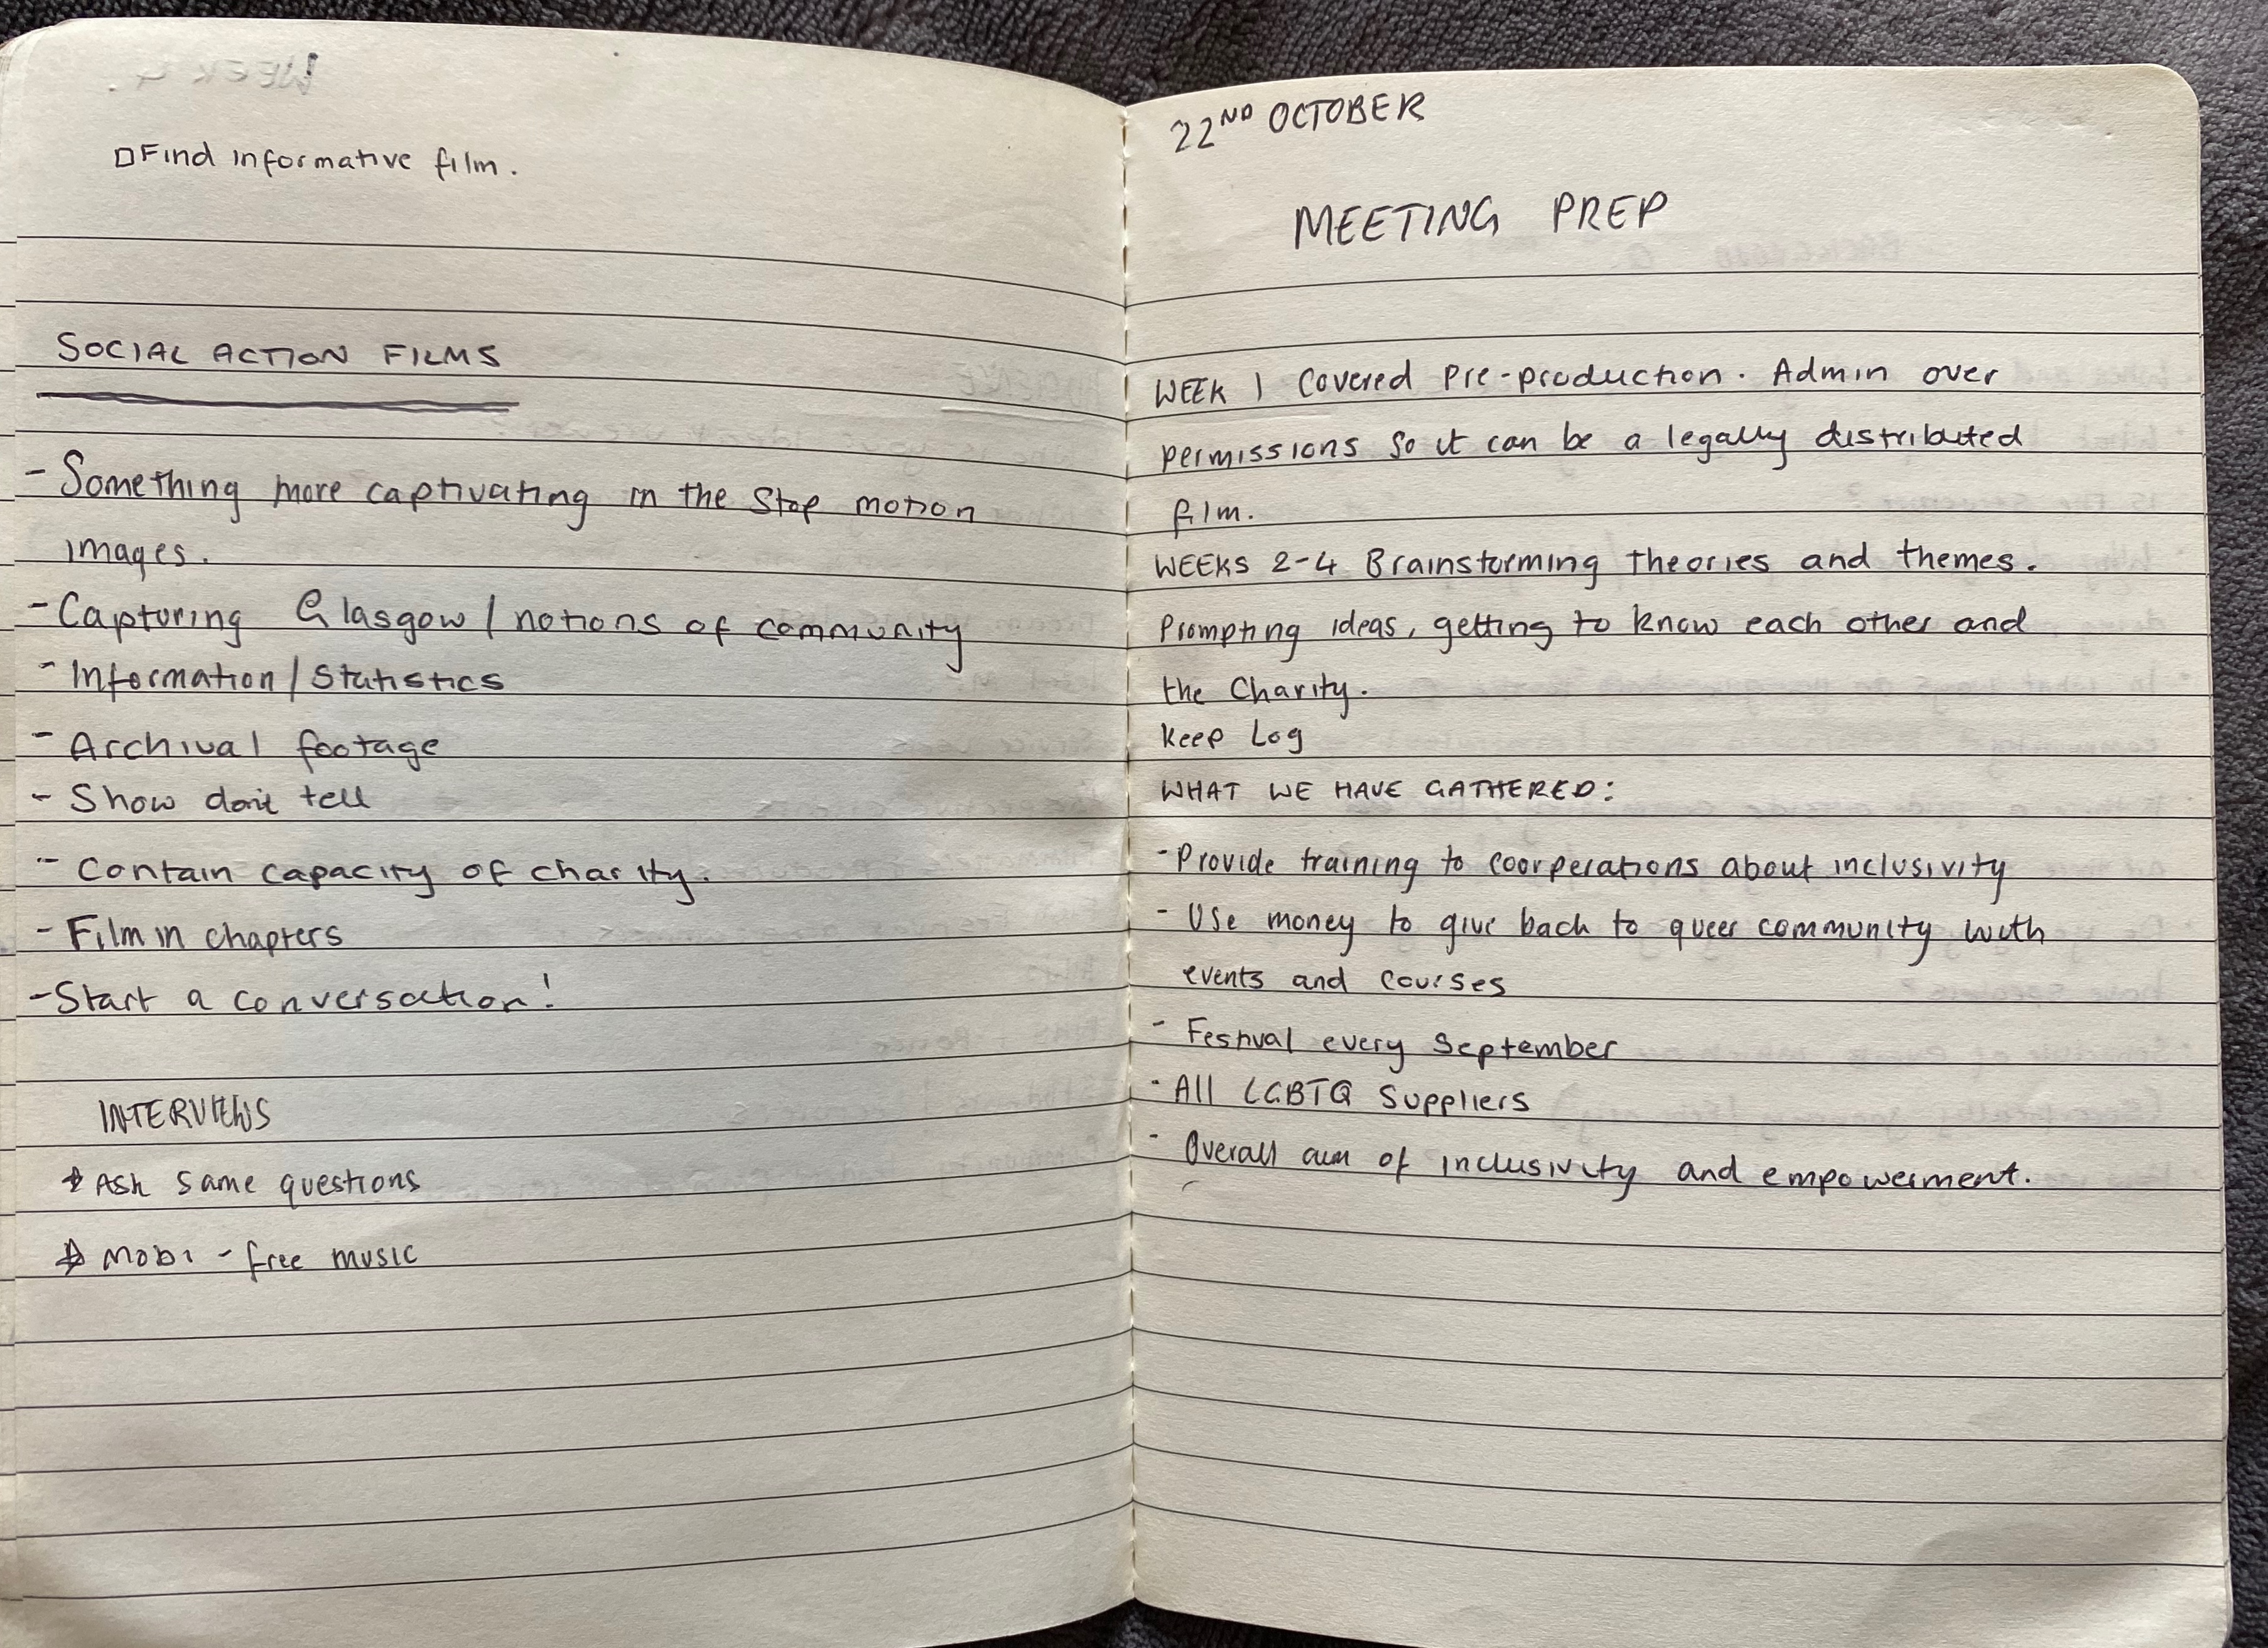 □ Find informative film.
SOCIAL ACTION FILMS
- Something more captivating in the stop motion
images.
- Capturing Glasgow / notions of community
- Information / Statistics
- Archival footage
- Show don't tell
- Contain capacity of charity.
- Film in chapters
- Start a conversation!
INTERVIEWS
* Ask same questions
* Mobi - free music
22ND OCTOBER
MEETING PREP
WEEK 1 Covered Pre-production. Admin over
permissions so it can be a legally distributed
film.
WEEKS 2-4 Brainstorming theories and themes.
Prompting ideas, getting to know each other and
the Charity.
Keep Log
WHAT WE HAVE GATHERED:
- Provide training to coorperations about inclusivity
- Use money to give back to queer community with
events and courses
- Festival every September
- All LGBTQ Suppliers
- Overall aim of inclusivity and empowerment.